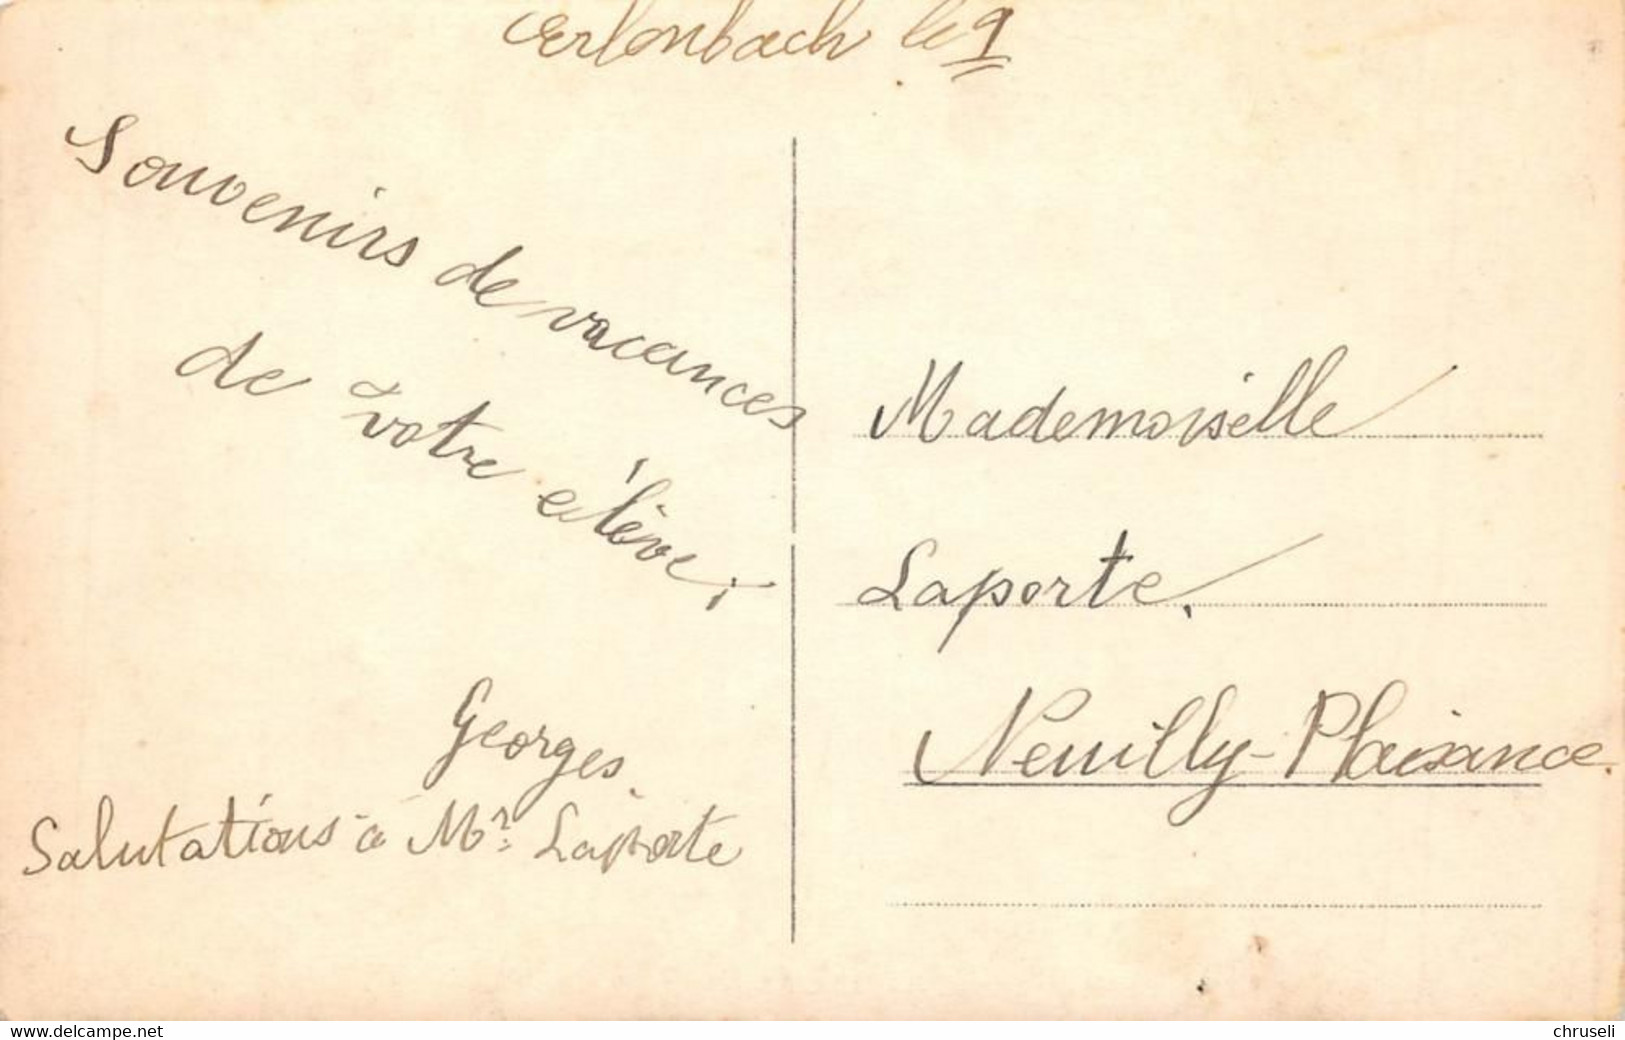 Erlenbach le 9
Souvenirs de vacances
de votre élève
Georges.
Salutations à Mr. Laporte
Mademoiselle
Laporte.
Neuilly-Plaisance.
www.delcampe.net
chruseli